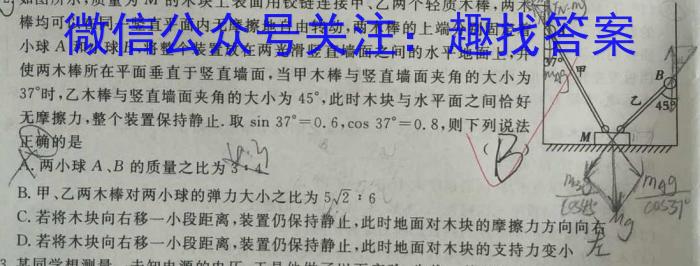 如图所示,质量为 M 的木块上表面用铰链连接甲、乙两个轻质木棒,两木
棒均可 在同一竖直平面内无摩擦地自由转动,两木棒的上端
微信公众号关注:趣找答案
小球 A 将整 装置放在两光滑竖直墙面之间的水平地面上,并
使两木棒所在平面垂直于竖直墙面,当甲木棒与竖直墙面夹角的大小为
37°时,乙木棒与竖直墙面夹角的大小为 45°,此时木块与水平面之间恰好
无摩擦力,整个装置保持静止.取 sin 37°=0.6,cos 37°=0.8,则下列说法
正确的是 ( B )
A. 两小球 A、B 的质量之比为 3∶4
B. 甲、乙两木棒对两小球的弹力大小之比为 5√2∶6
C. 若将木块向右移一小段距离,装置仍保持静止,此时地面对木块的摩擦力方向向右
左
D. 若将木块向右移一小段距离,装置仍保持静止,此时地面对木块的支持力变小
37°
甲
B
乙
45°
M
mBg
cos37°
Mg